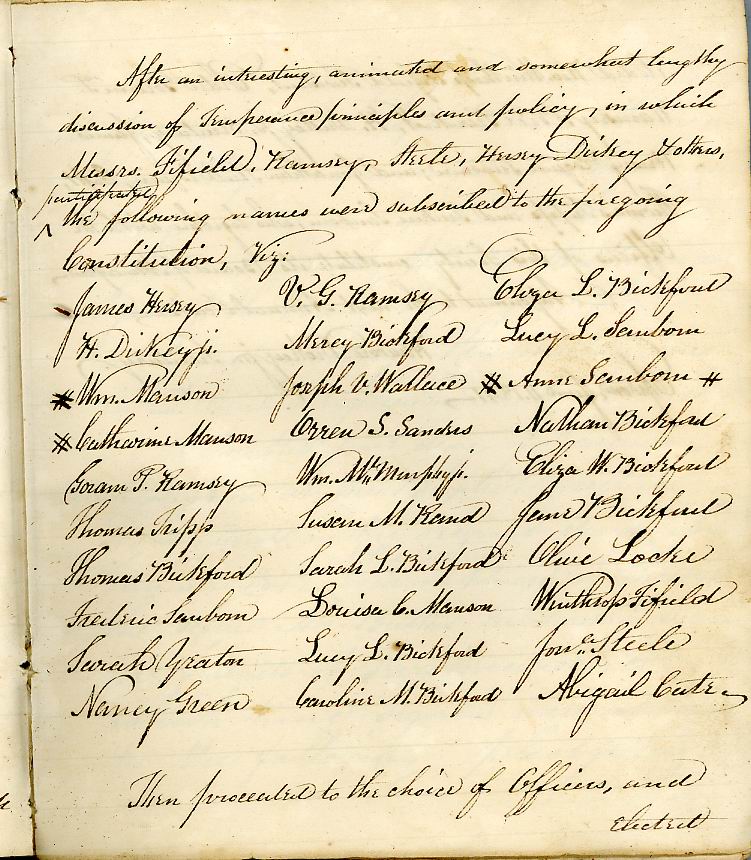 After an interesting, animated and somewhat lengthy
discussion of Temperance principles and policy, in which
Messrs. Fifield, Ramsey, Steele, Hersey Dickey & others,
participated
^ the following names were subscribed to the foregoing
Constitution, Viz:
James Hersey V. G. Ramsey Eliza L. Bickford
H. Dickey jr. Mercy Bickford Lucy L. Sanborn
# Wm. Manson Joseph V. Wallace # Anne Sanborn #
# Catharine Manson Orren S. Sanders Nathan Bickford
Goram P. Ramsey Wm. McMurphy jr. Eliza W. Bickford
Thomas Tripp Susan M. Rand Jane Bickford
Thomas Bickford Sarah L. Bickford Olive Locke
Frederic Sanborn Louisa C. Manson Winthrop Fifield
Sarah Yeaton Lucy L. Bickford Jona. Steele
Nancy Green Caroline M. Bickford Abigail Cate
Then proceeded to the choice of Officers, and
elected